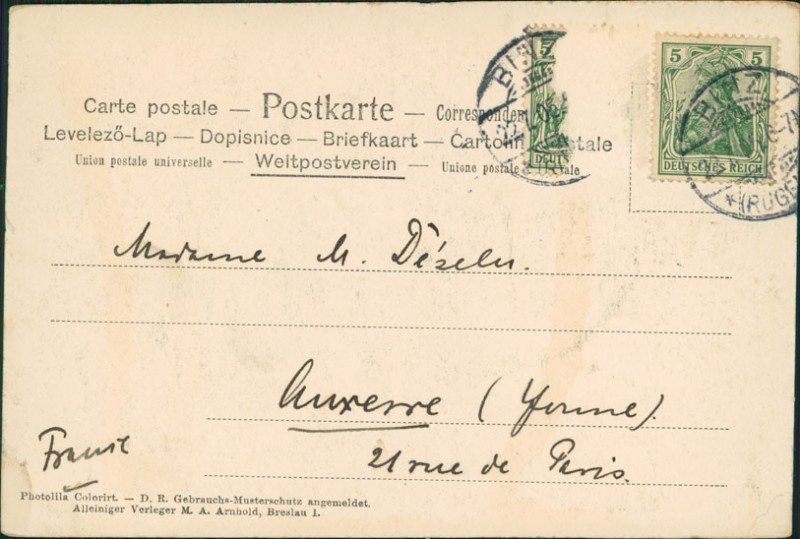 Carte postale — Postkarte — Correspondenz
Levelező-Lap — Dopisnice — Briefkaart — Cartolina postale
Union postale universelle — Weltpostverein — Unione postale
5
DEUTS
5 5
DEUTSCHES REICH
BINZ
BINZ
(RÜGEN
Madame M. Dézelu.
Auxerre (Yonne)
21 rue de Paris.
France
Photolila Colorirt. — D. R. Gebrauchs-Musterschutz angemeldet.
Alleiniger Verleger M. A. Arnhold, Breslau 1.